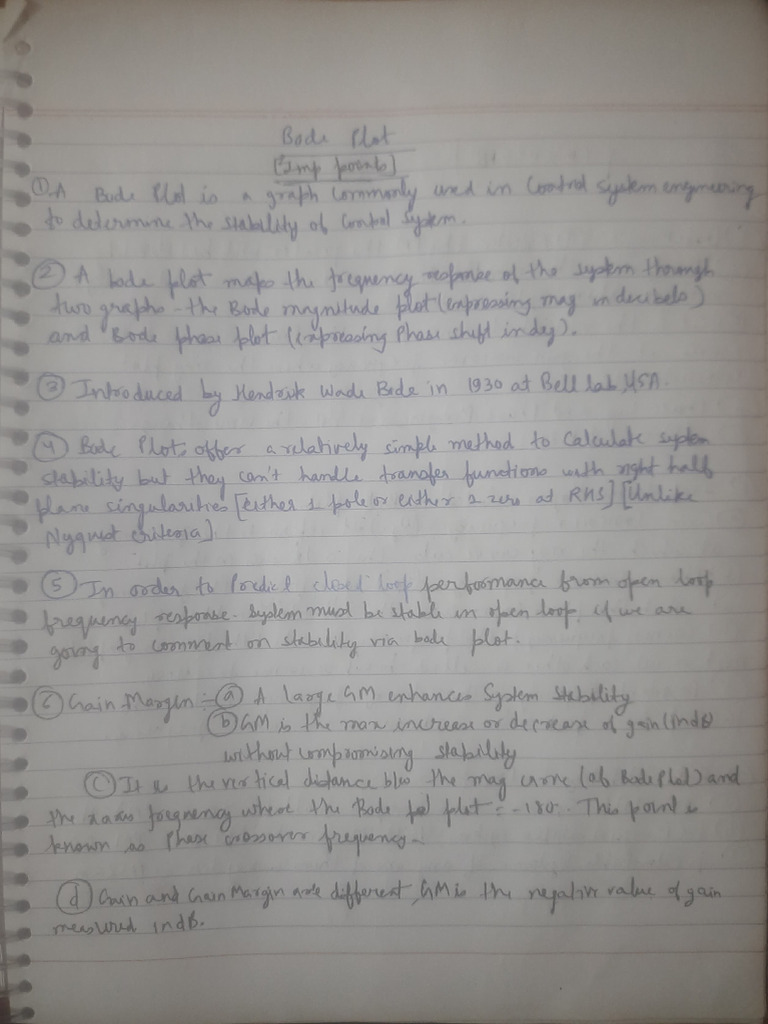 Bode Plot
[Imp points]
① A Bode Plot is a graph commonly used in Control system engineering
to determine the stability of Control System.
② A bode plot maps the frequency response of the system through
two graphs - the Bode magnitude plot (expressing mag in decibels)
and Bode phase plot (expressing Phase shift in deg).
③ Introduced by Hendrik Wade Bode in 1930 at Bell lab, USA.
④ Bode Plots offer a relatively simple method to Calculate system
stability but they can't handle transfer functions with right half
plane singularities [either 1 pole or either a zero at RHS] [Unlike
Nyquist criteria].
⑤ In order to Predict closed loop performance from open loop
frequency response. System must be stable in open loop, if we are
going to comment on stability via bode plot.
⑥ Gain Margin :- ⓐ A large GM enhances System Stability
ⓑ GM is the max increase or decrease of gain (in dB
without compromising stability
ⓒ It is the vertical distance b/w the mag curve (of Bode Plot) and
the x axis frequency where the Bode plot = -180. This point is
known as Phase crossover frequency.
ⓓ Gain and Gain Margin are different, GM is the negative value of gain
measured in dB.